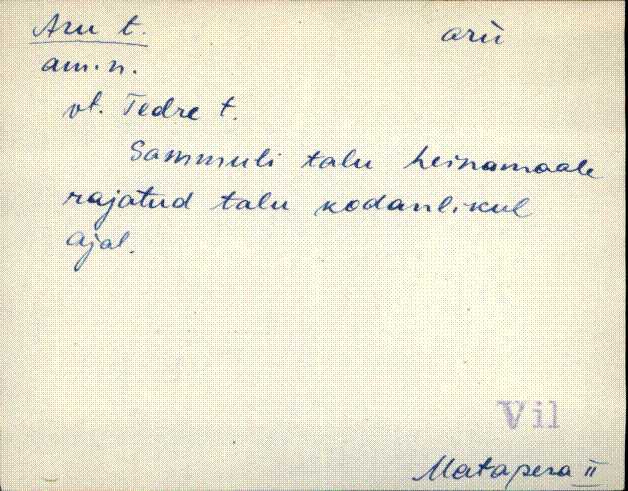 Aru t. arù
am.n.
vt. Tedre t.
Sammuli talu heinamaale
rajatud talu kodanlikul
ajal.
Vil
Matapera II